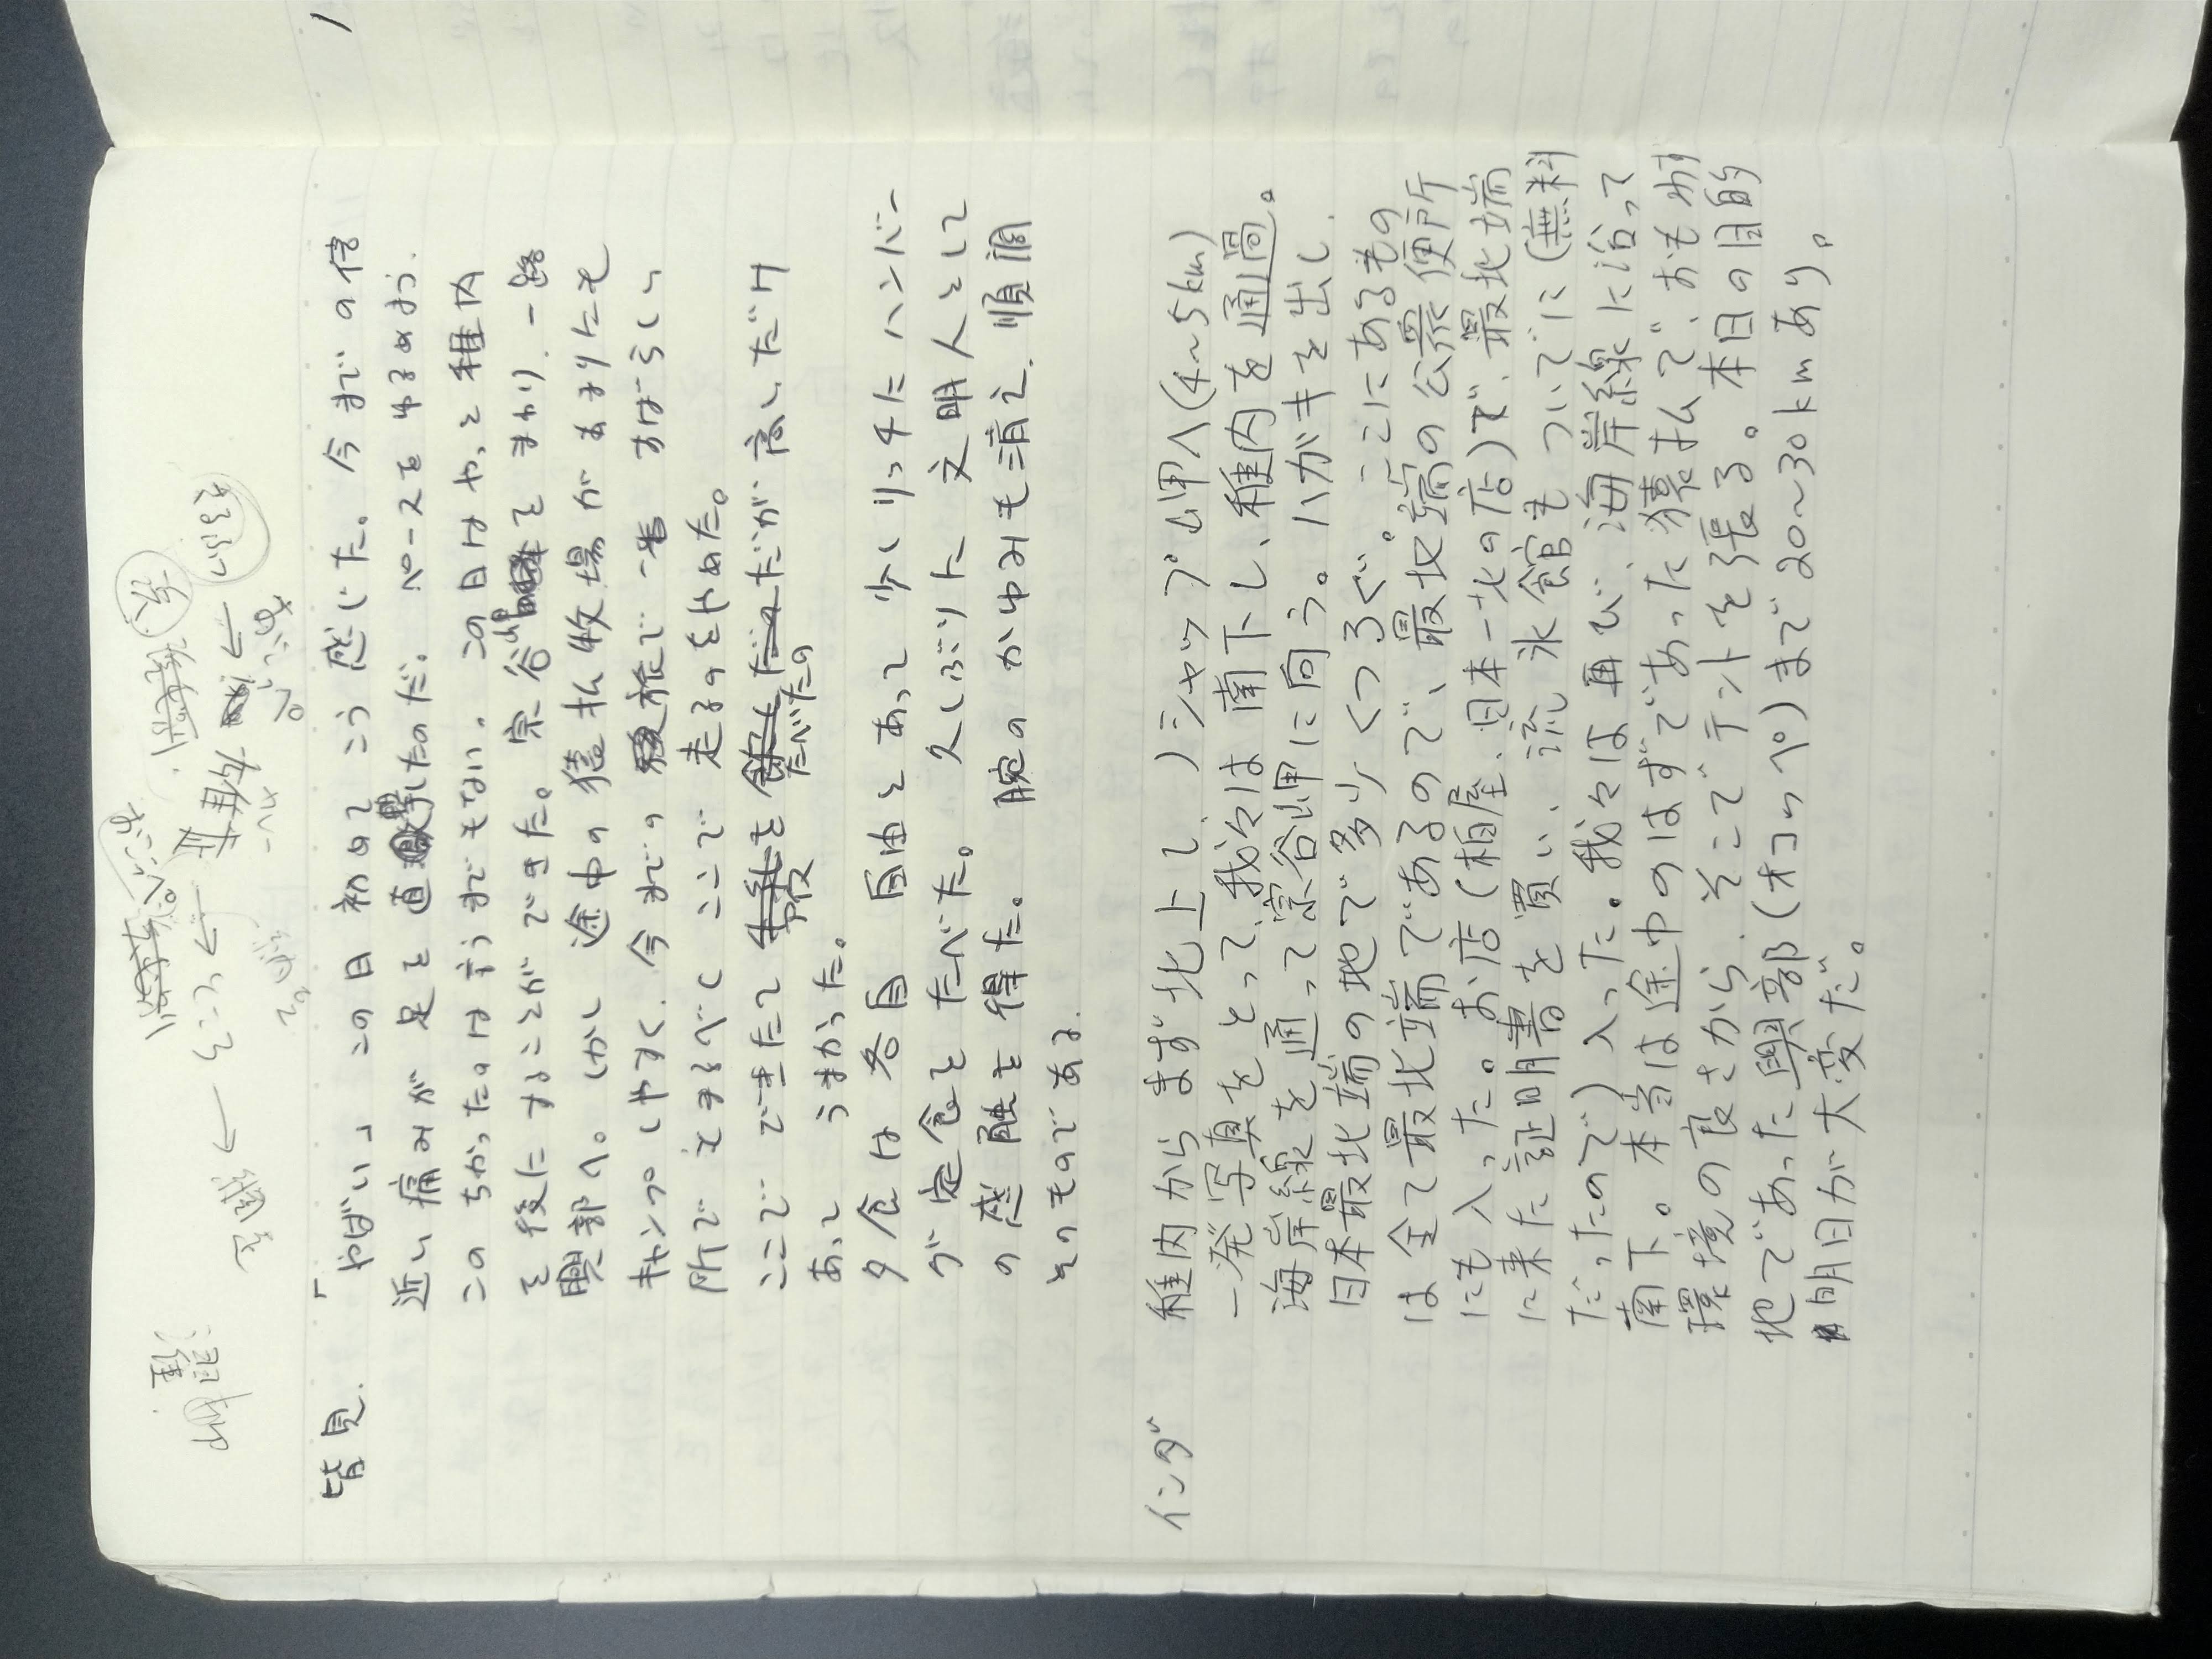 皆見.
「やばい」この日初めてこう感じた。今までの倍
近い痛みが足を直撃したのだ。ペースをゆるめよう.
このちかったのは言うまでもない。この日はやっと稚内
を後にすることができた。宗谷岬をまわり、一路
興部へ。しかし途中の猿払牧場があまりにも
キャンプしやすく、今までの旅で一番すばらしい
所でそするべくここで走るのをやめた。
ここでできたて
たべたの
だが高いだけ
あって うまかった。
夕食は各自自由とあって少しリッチにハンバー
グ定食をたべた。久しぶりに文明人として
の感触を得た。腕のかゆみも消え、順調
そのものである.
インダ
稚内からまず北上して、ノシャップ岬へ(4~5km)
一発写真をとって、我々は南下し、稚内を通過。
海岸線を通って宗谷岬に向う。ハガキを出し.
日本最北端の地で多少くつろぐ。ここにあるもの
は全て最北端であるので、最北端の公衆便所
にも入った。お店(柏屋.日本一北の店)で、最北端
に来た証明書を買い、流氷館もついでに(無料
だったので)入った。我々は再び、海岸線に沿って
南下。本当は途中のはずであった猿払で、おもわず
環境の良さから、そこでテントを張る。本日の目的
地であった興部(オコッペ)まで20~30kmあり。
明日が大変だ。